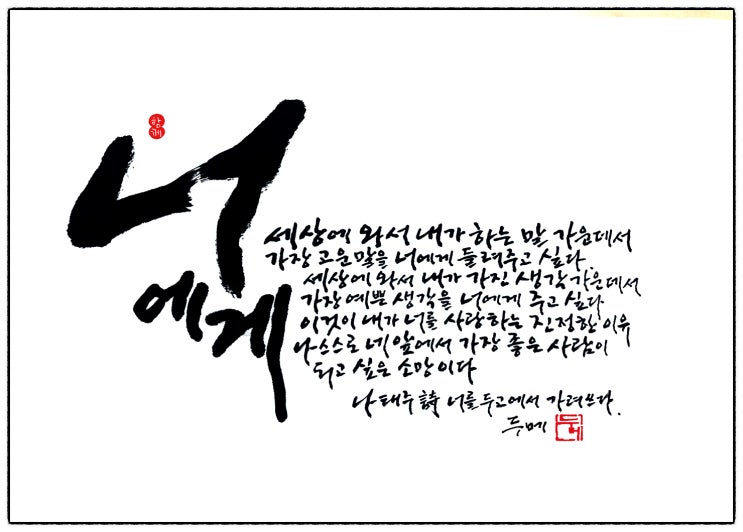 너
에게
함께
세상에 와서 내가 하는 말 가운데서
가장 고운말을 너에게 들려주고 싶다.
세상에 와서 내가 가진 생각 가운데서
가장 예쁜 생각을 너에게 주고 싶다
이것이 내가 너를 사랑하는 진정한 이유
나 스스로 네 앞에서 가장 좋은 사람이
되고 싶은 소망이다
나태주 詩 너를 두고에서 가려쓰다.
두메
두메